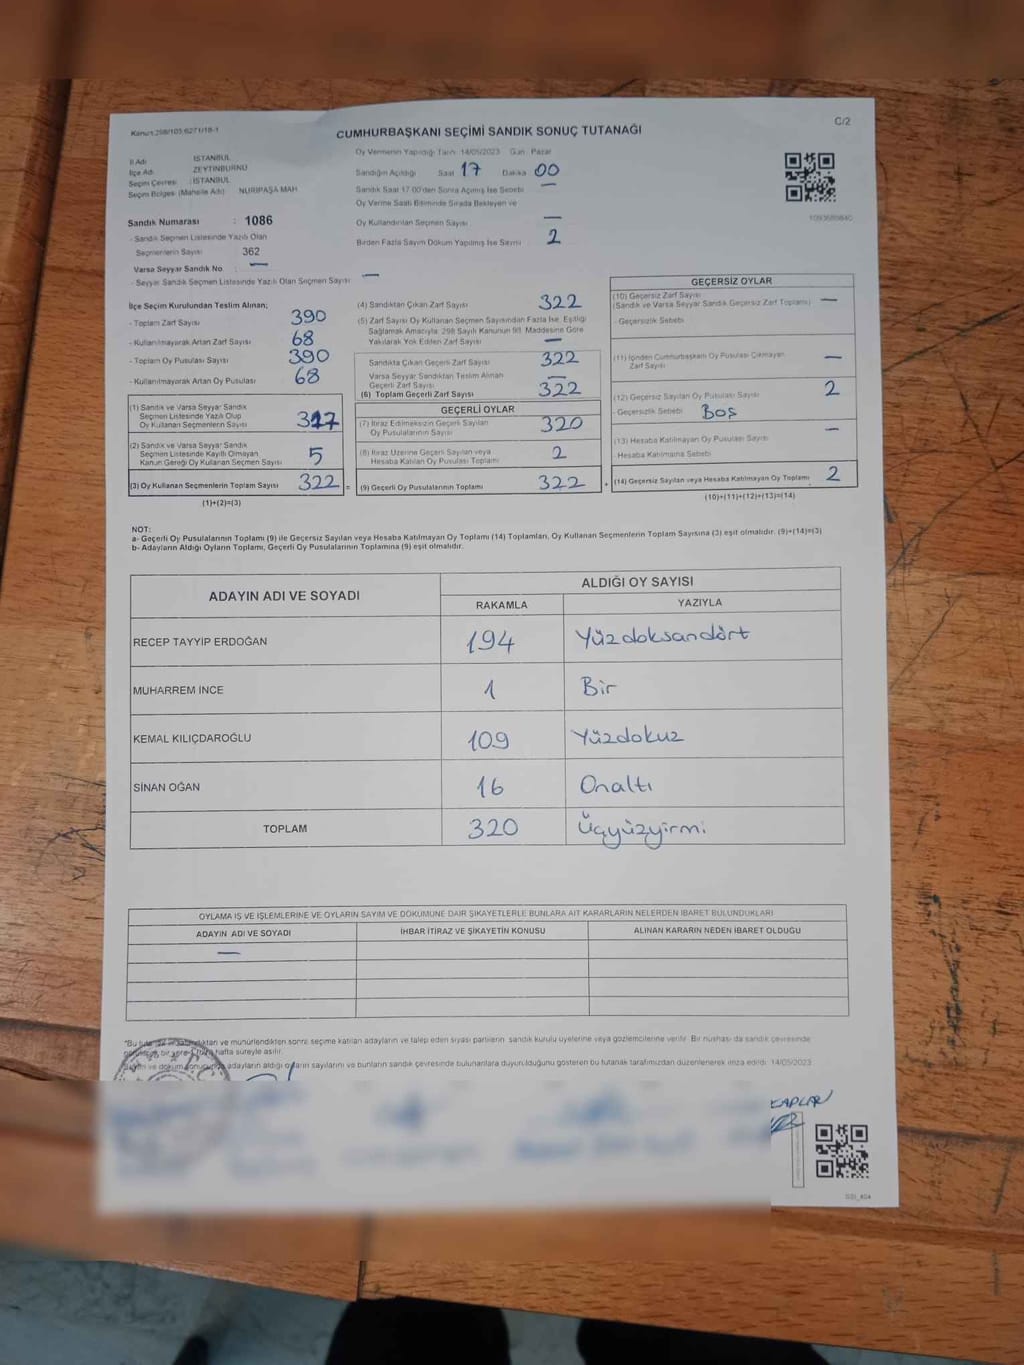 Kanun:298/103;6271/18-1
C/2
CUMHURBAŞKANI SEÇİMİ SANDIK SONUÇ TUTANAĞI
İl Adı : İSTANBUL
İlçe Adı : ZEYTİNBURNU
Seçim Çevresi : İSTANBUL
Seçim Bölgesi (Mahalle Adı) : NURİPAŞA MAH.
Oy Vermenin Yapıldığı Tarih: 14/05/2023 Gün: Pazar
Sandığın Açıldığı Saat 17 Dakika 00
Sandık Saat 17.00'den Sonra Açılmış İse Sebebi —
Oy Verme Saati Bitiminde Sırada Bekleyen ve
Oy Kullandırılan Seçmen Sayısı —
Birden Fazla Sayım Döküm Yapılmış İse Sayısı 2
Sandık Numarası : 1086
- Sandık Seçmen Listesinde Yazılı Olan
Seçmenlerin Sayısı 362
Varsa Seyyar Sandık No —
- Seyyar Sandık Seçmen Listesinde Yazılı Olan Seçmen Sayısı —
İlçe Seçim Kurulundan Teslim Alınan;
- Toplam Zarf Sayısı 390
- Kullanılmayarak Artan Zarf Sayısı 68
- Toplam Oy Pusulası Sayısı 390
- Kullanılmayarak Artan Oy Pusulası 68
(1) Sandık ve Varsa Seyyar Sandık
Seçmen Listesinde Yazılı Olup
Oy Kullanan Seçmenlerin Sayısı 317
(2) Sandık ve Varsa Seyyar Sandık
Seçmen Listesinde Kayıtlı Olmayan
Kanun Gereği Oy Kullanan Seçmen Sayısı 5
(3) Oy Kullanan Seçmenlerin Toplam Sayısı 322
(1)+(2)=(3)
(4) Sandıktan Çıkan Zarf Sayısı 322
(5) Zarf Sayısı Oy Kullanan Seçmen Sayısından Fazla İse, Eşitliği
Sağlamak Amacıyla, 298 Sayılı Kanunun 98. Maddesine Göre
Yakılarak Yok Edilen Zarf Sayısı —
Sandıkta Çıkan Geçerli Zarf Sayısı 322
Varsa Seyyar Sandıktan Teslim Alınan
Geçerli Zarf Sayısı —
(6) Toplam Geçerli Zarf Sayısı 322
GEÇERLİ OYLAR
(7) İtiraz Edilmeksizin Geçerli Sayılan
Oy Pusulalarının Sayısı 320
(8) İtiraz Üzerine Geçerli Sayılan veya
Hesaba Katılan Oy Pusulası Toplamı 2
(9) Geçerli Oy Pusulalarının Toplamı 322
GEÇERSİZ OYLAR
(10) Geçersiz Zarf Sayısı —
(Sandık ve Varsa Seyyar Sandık Geçersiz Zarf Toplamı)
- Geçersizlik Sebebi
(11) İçinden Cumhurbaşkanı Oy Pusulası Çıkmayan
Zarf Sayısı —
(12) Geçersiz Sayılan Oy Pusulası Sayısı 2
- Geçersizlik Sebebi Boş
(13) Hesaba Katılmayan Oy Pusulası Sayısı —
- Hesaba Katılmama Sebebi
(14) Geçersiz Sayılan veya Hesaba Katılmayan Oy Toplamı 2
(10)+(11)+(12)+(13)=(14)
NOT:
a- Geçerli Oy Pusulasının Toplamı (9) ile Geçersiz Sayılan veya Hesaba Katılmayan Oy Toplamı (14) Toplamları, Oy Kullanan Seçmenlerin Toplam Sayısına (3) eşit olmalıdır. (9)+(14)=(3)
b- Adayların Aldığı Oyların Toplamı, Geçerli Oy Pusulalarının Toplamına (9) eşit olmalıdır.
ADAYIN ADI VE SOYADI
ALDIĞI OY SAYISI
RAKAMLA YAZIYLA
RECEP TAYYİP ERDOĞAN 194 Yüzdoksandört
MUHARREM İNCE 1 Bir
KEMAL KILIÇDAROĞLU 109 Yüzdokuz
SİNAN OĞAN 16 Onaltı
TOPLAM 320 Üçyüzyirmi
OYLAMA İŞ VE İŞLEMLERİNE VE OYLARIN SAYIM VE DÖKÜMÜNE DAİR ŞİKAYETLERLE BUNLARA AİT KARARLARIN NELERDEN İBARET BULUNDUKLARI
ADAYIN ADI VE SOYADI İHBAR İTİRAZ VE ŞİKAYETİN KONUSU ALINAN KARARIN NEDEN İBARET OLDUĞU
—
ve mühürlendikten sonra seçime katılan adayların ve talep eden siyasi partilerin sandık kurulu üyelerine veya gözlemcilerine verilir. Bir nüshası da sandık çevresinde
hafta süreyle asılır.
adayların aldığı oyların sayılarını ve bunların sandık çevresinde bulunanlara duyurulduğunu gösteren bu tutanak tarafımızdan düzenlenerek imza edildi. 14/05/2023
KAPLAN